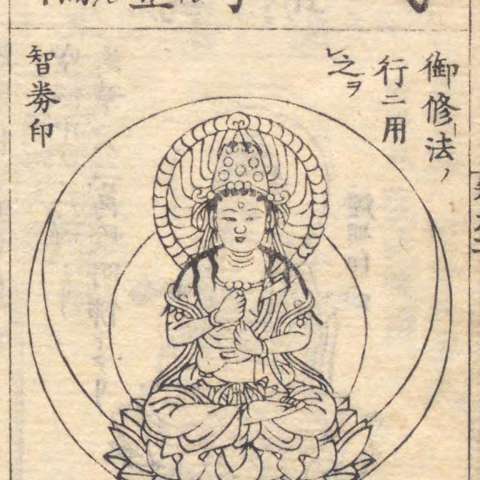 御修法ノ
行ニ用
レ之ヲ
智券印